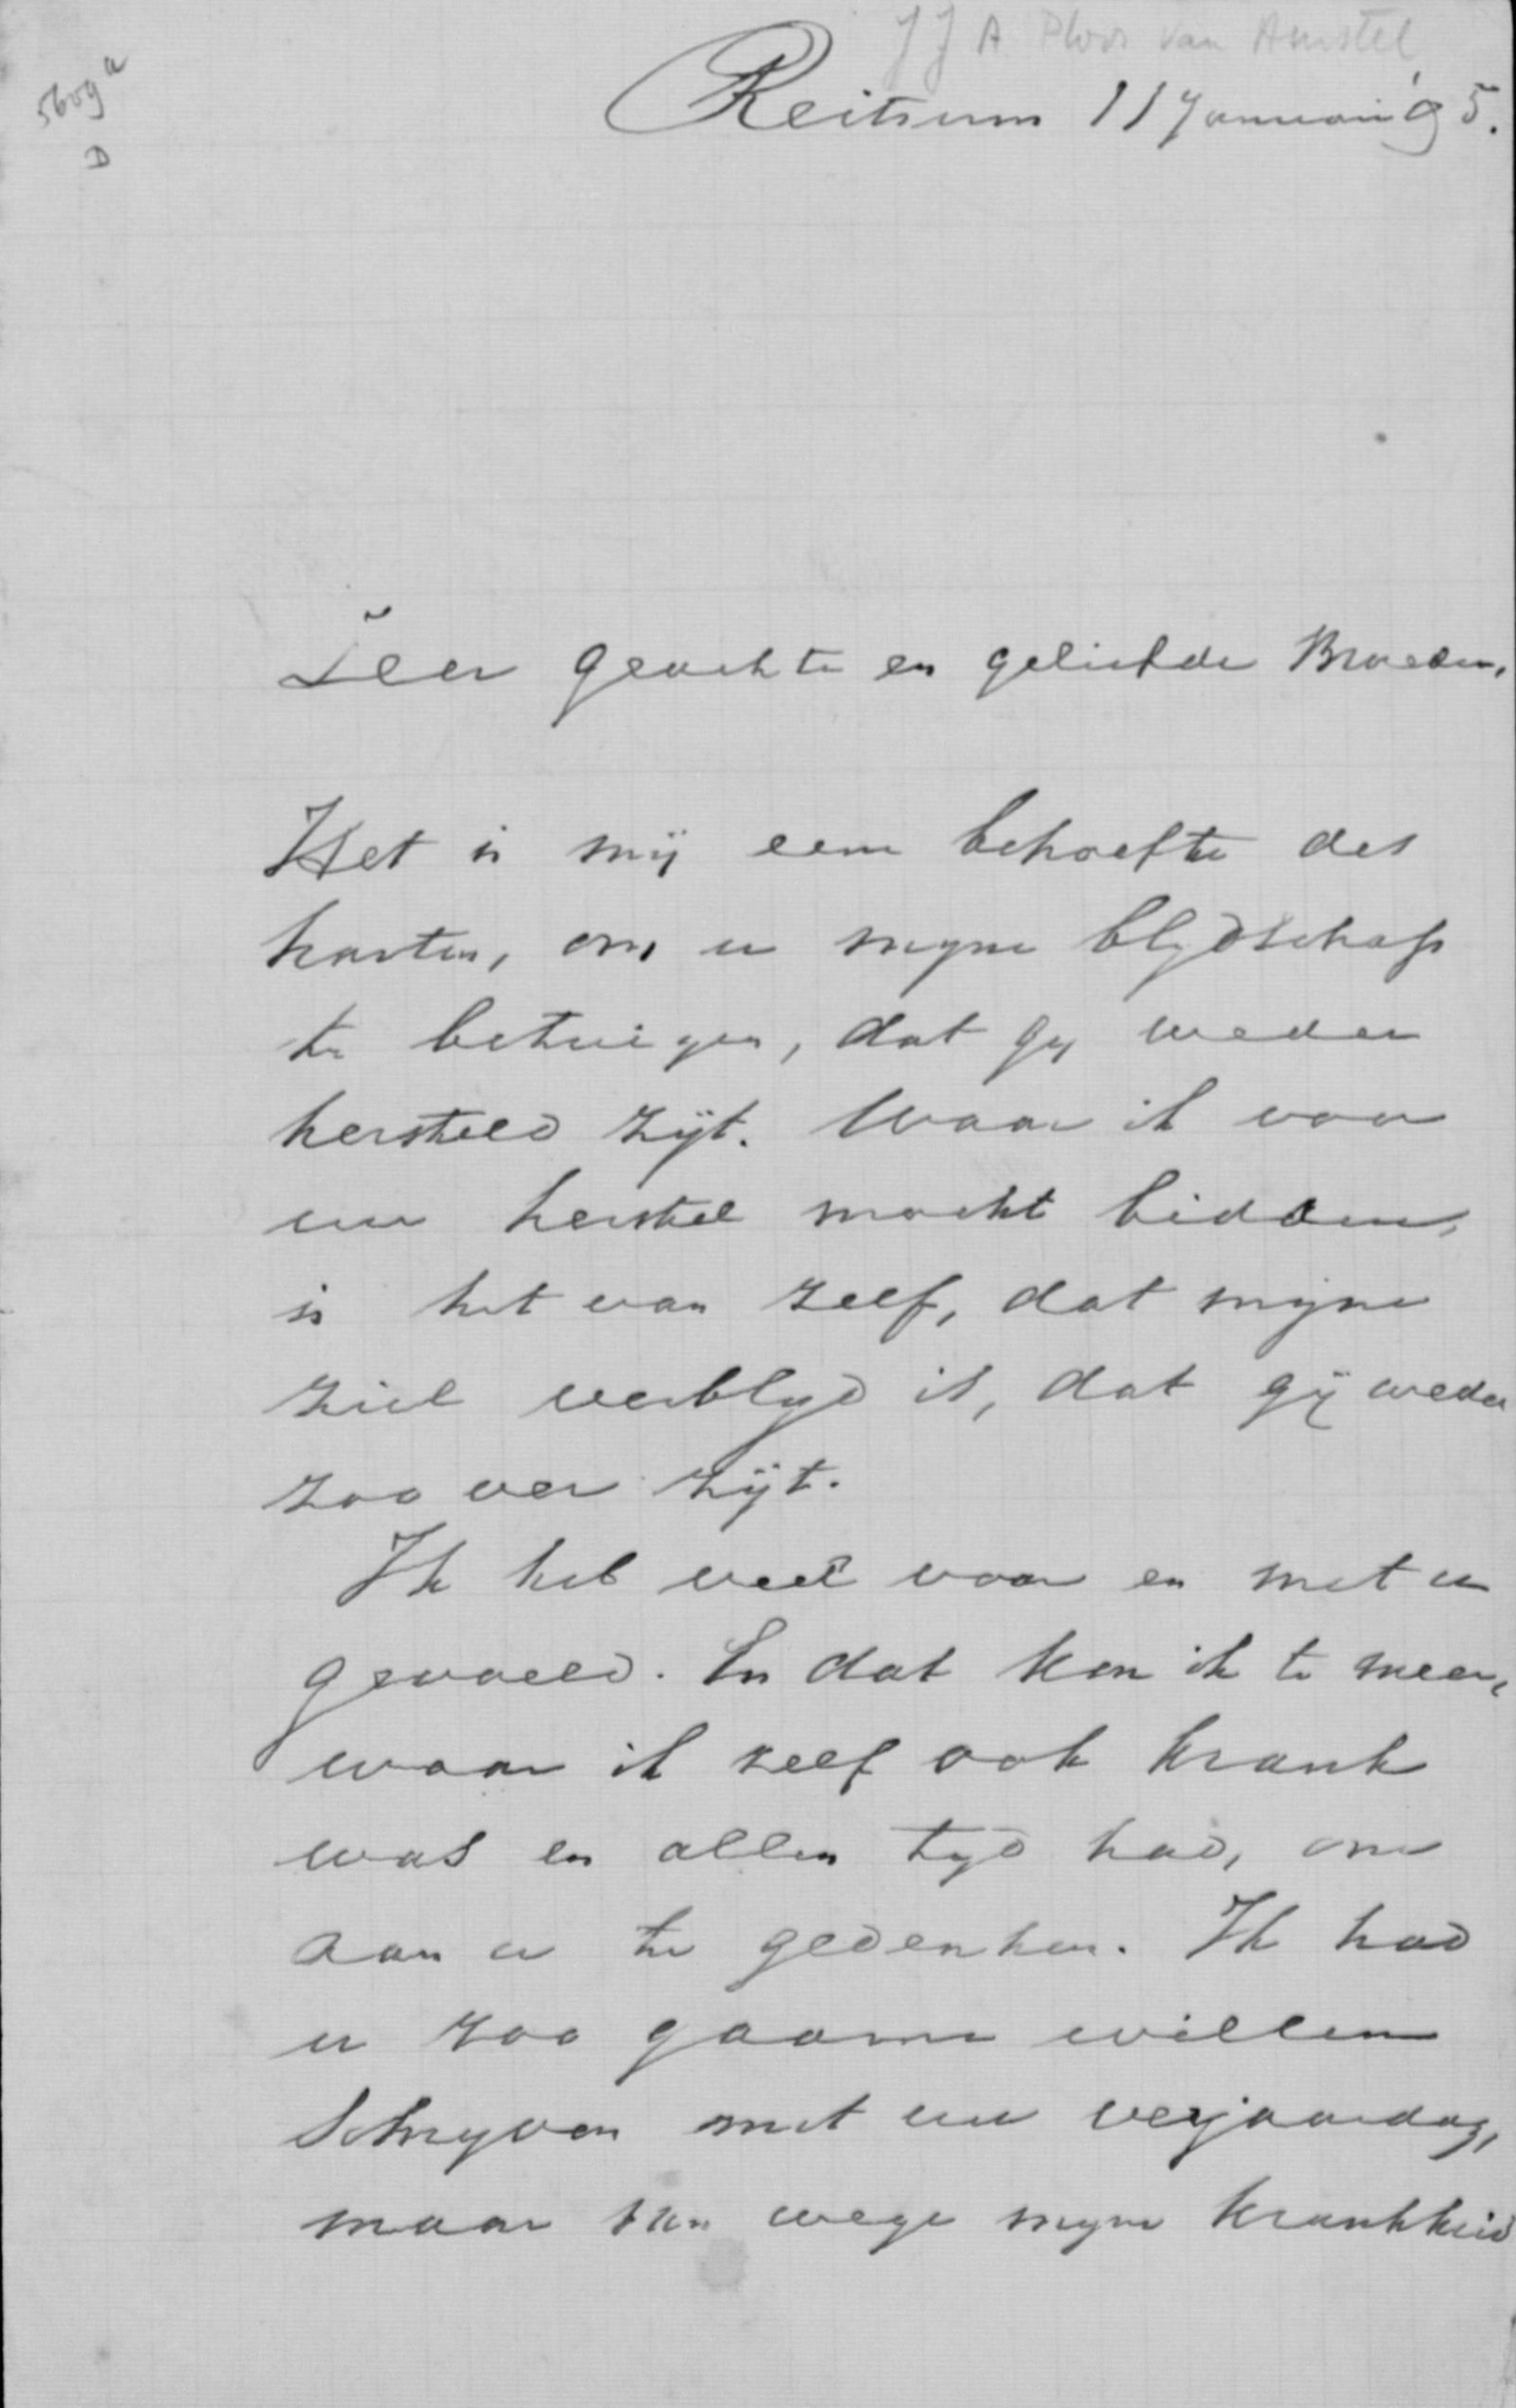 J J A Ploos van Amstel
5609 a
D
Reitsum 11 Januari '95.
Zeer geachte en geliefde Broeder,
Het is mij eene behoefte des
harten, om u mijne blijdschap
te betuigen, dat gij weder
hersteld zijt. Waar ik voor
uw herstel mocht bidden,
is het van zelf, dat mijne
ziel verblijd is, dat gij weder
zoo ver zijt.
Ik heb veel voor en met u
gevoeld. En dat kon ik te meer,
waar ik zelf ook krank
was en allen tijd had, om
aan u te gedenken. Ik had
u zoo gaarne willen
schrijven met uw verjaardag,
maar van wege mijne krankheid